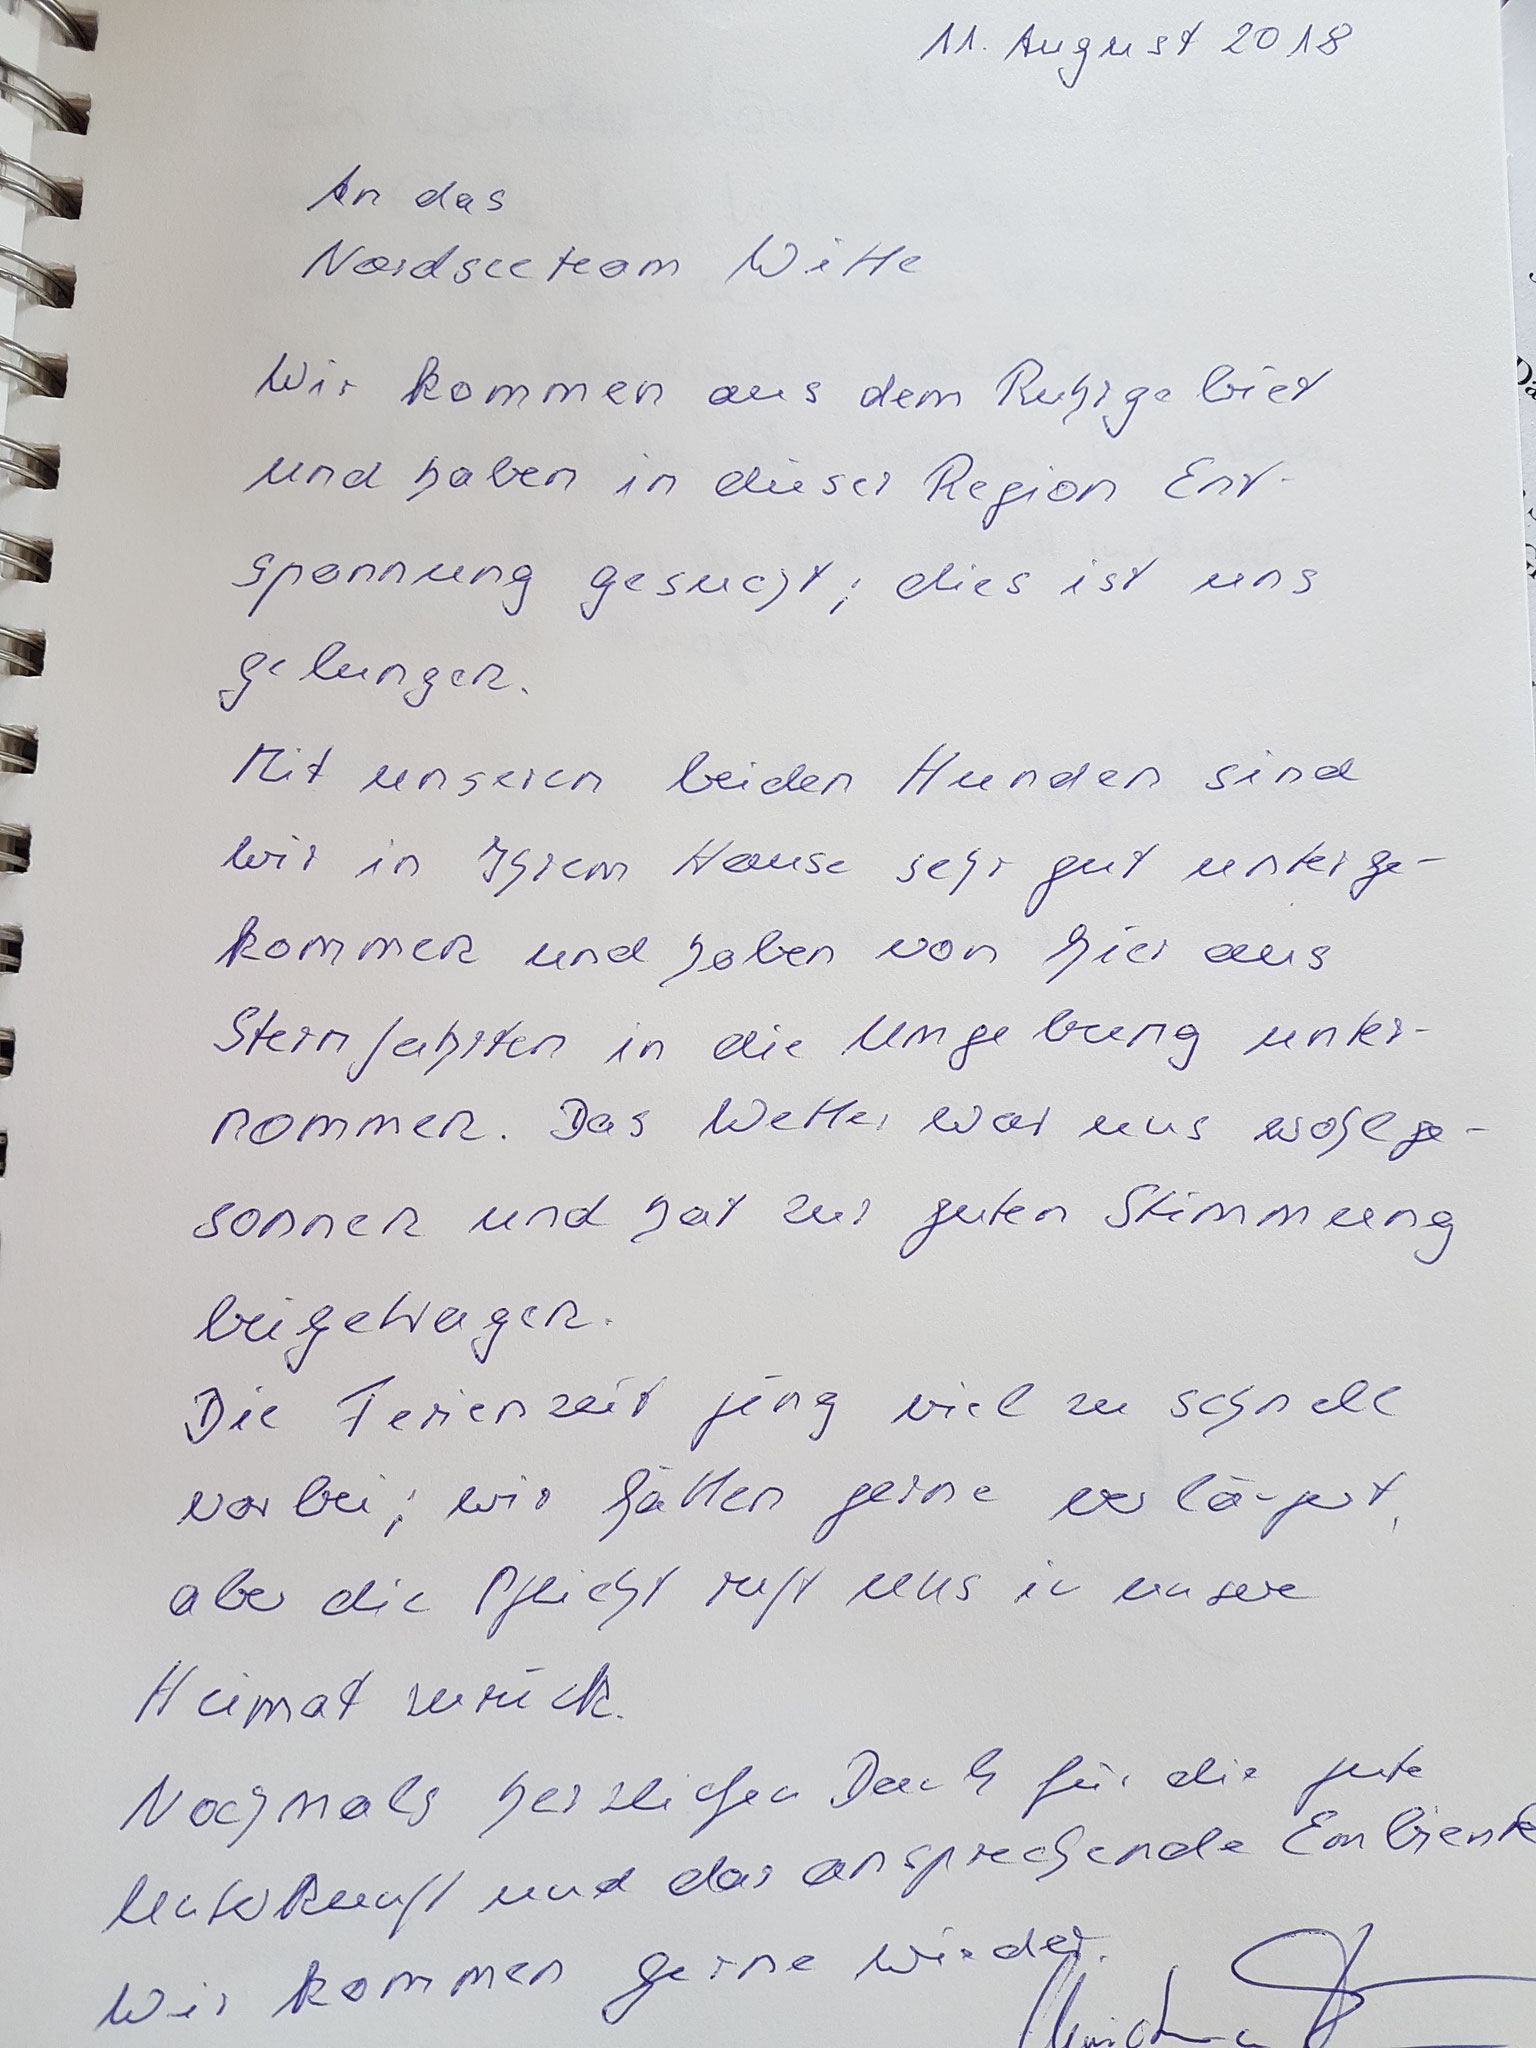 11. August 2018
An das
Nordseeteam Witte
Wir kommen aus dem Ruhrgebiet
und haben in dieser Region Ent-
spannung gesucht; dies ist uns
gelungen.
Mit unseren beiden Hunden sind
wir in Ihrem Hause sehr gut unterge-
kommen und haben von hier aus
Sternfahrten in die Umgebung unter-
nommen. Das Wetter war uns wohlge-
sonnen und hat zur guten Stimmung
beigetragen.
Die Ferienzeit ging viel zu schnell
vorbei; wir hätten gerne verlängert,
aber die Pflicht ruft uns in unsere
Heimat zurück.
Nochmals herzlichen Dank für die gute
Unterkunft und das ansprechende Embiente
Wir kommen gerne wieder.